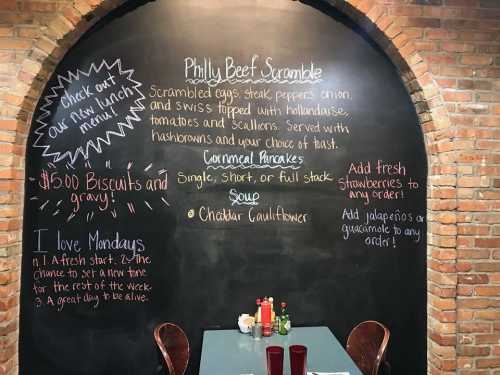 Check out
our new lunch
menu!
Philly Beef Scramble
Scrambled eggs, steak, peppers, onion,
and swiss topped with hollandaise,
tomatoes and scallions. Served with
hashbrowns and your choice of toast.
Cornmeal Pancakes
Single, short, or full stack
Soup
Cheddar Cauliflower
$15.00 Biscuits and
gravy!
I love Mondays
1. A fresh start. 2. The
chance to set a new tone
for the rest of the week.
3. A great day to be alive.
Add fresh
strawberries to
any order!
Add jalapeños or
guacamole to any
order!